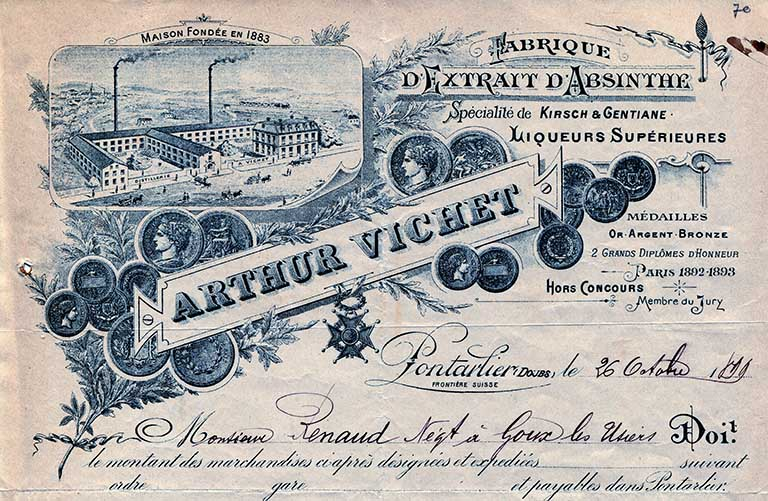 7e
MAISON FONDÉE EN 1883
FABRIQUE
D'EXTRAIT D'ABSINTHE
Spécialité de KIRSCH & GENTIANE.
LIQUEURS SUPÉRIEURES
DISTILLERIE
A. VICHET
ARTHUR VICHET
MÉDAILLES
OR. ARGENT. BRONZE
2 GRANDS DIPLÔMES D'HONNEUR
PARIS 1892-1893
HORS CONCOURS
Membre du Jury
Pontarlier, (DOUBS), le 26 Octobre
FRONTIÈRE SUISSE
Monsieur Renaud Négt à Goux les Usiers Doit.
le montant des marchandises ci-après désignées et expédiées suivant
ordre gare et payables dans Pontarlier.